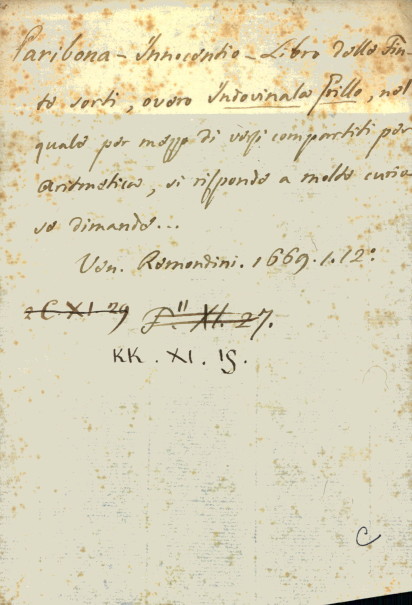 Paribona - Innocentio - Libro delle Fin-
te sorti, overo Indovinala Grillo, nel
quale per mezzo di versi compartiti per
Aritmetica, si risponde a molte curio-
se dimande...
Ven. Remondini. 1669. 1. 12°.
2 C. XI. 29 P." XI. 27.
KK. XI. 19.
C